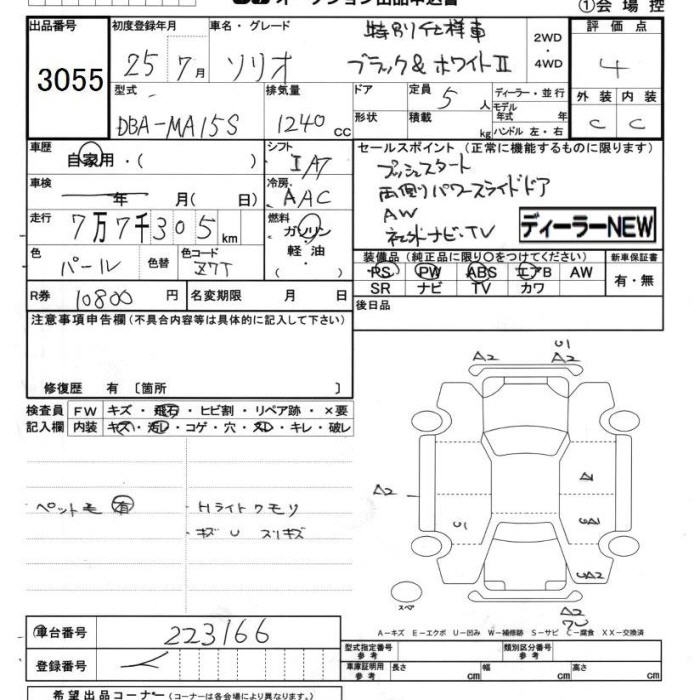 オークション出品申込書
①会場控
出品番号 初度登録年月 車名・グレード 特別仕様車 2WD・4WD 評価点
3055 25年7月 ソリオ ブラック&ホワイトⅡ 4
型式 排気量 ドア 定員 5人 ディーラー・並行 外装 内装
DBA-MA15S 1240cc 形状 積載 kg モデル年式 年 ハンドル 左・右 C C
車歴 自家用・( ) シフト IAT セールスポイント (正常に機能するものに限ります)
車検 年 月( 日) 冷房 AAC
プッシュスタート
両側パワースライドドア
AW
社外ナビ・TV ディーラーNEW
走行 7万7千305km 燃料 ガソリン 軽油 ( )
色 パール 色替 色コード Z7T
装備品 (純正品に限り○をつけてください) 新車保証書
PS PW ABS エアB AW 有・無
SR ナビ TV カワ
R券 10800円 名変期限 月 日 後日品
注意事項申告欄 (不具合内容等は具体的に記入して下さい)
修復歴 有 〔箇所 〕
検査員 FW キズ・飛石・ヒビ割・リペア跡・×要
記入欄 内装 キズ・汚レ・コゲ・穴・スレ・キレ・破レ
ペット毛 有 Hライトクモリ
・キズ U スリキズ
U1
A2 A2
A2
A1
U1 U2
UA2
スペア
A2
A-キズ E-エクボ U-凹み W-補修跡 S-サビ C-腐食 XX-交換済
車台番号 223166
登録番号
型式指定番号 参考 類別区分番号 参考
車庫証明用 参考 長さ cm 幅 cm 高さ cm
希望出品コーナー (コーナーは各会場により異なります。)